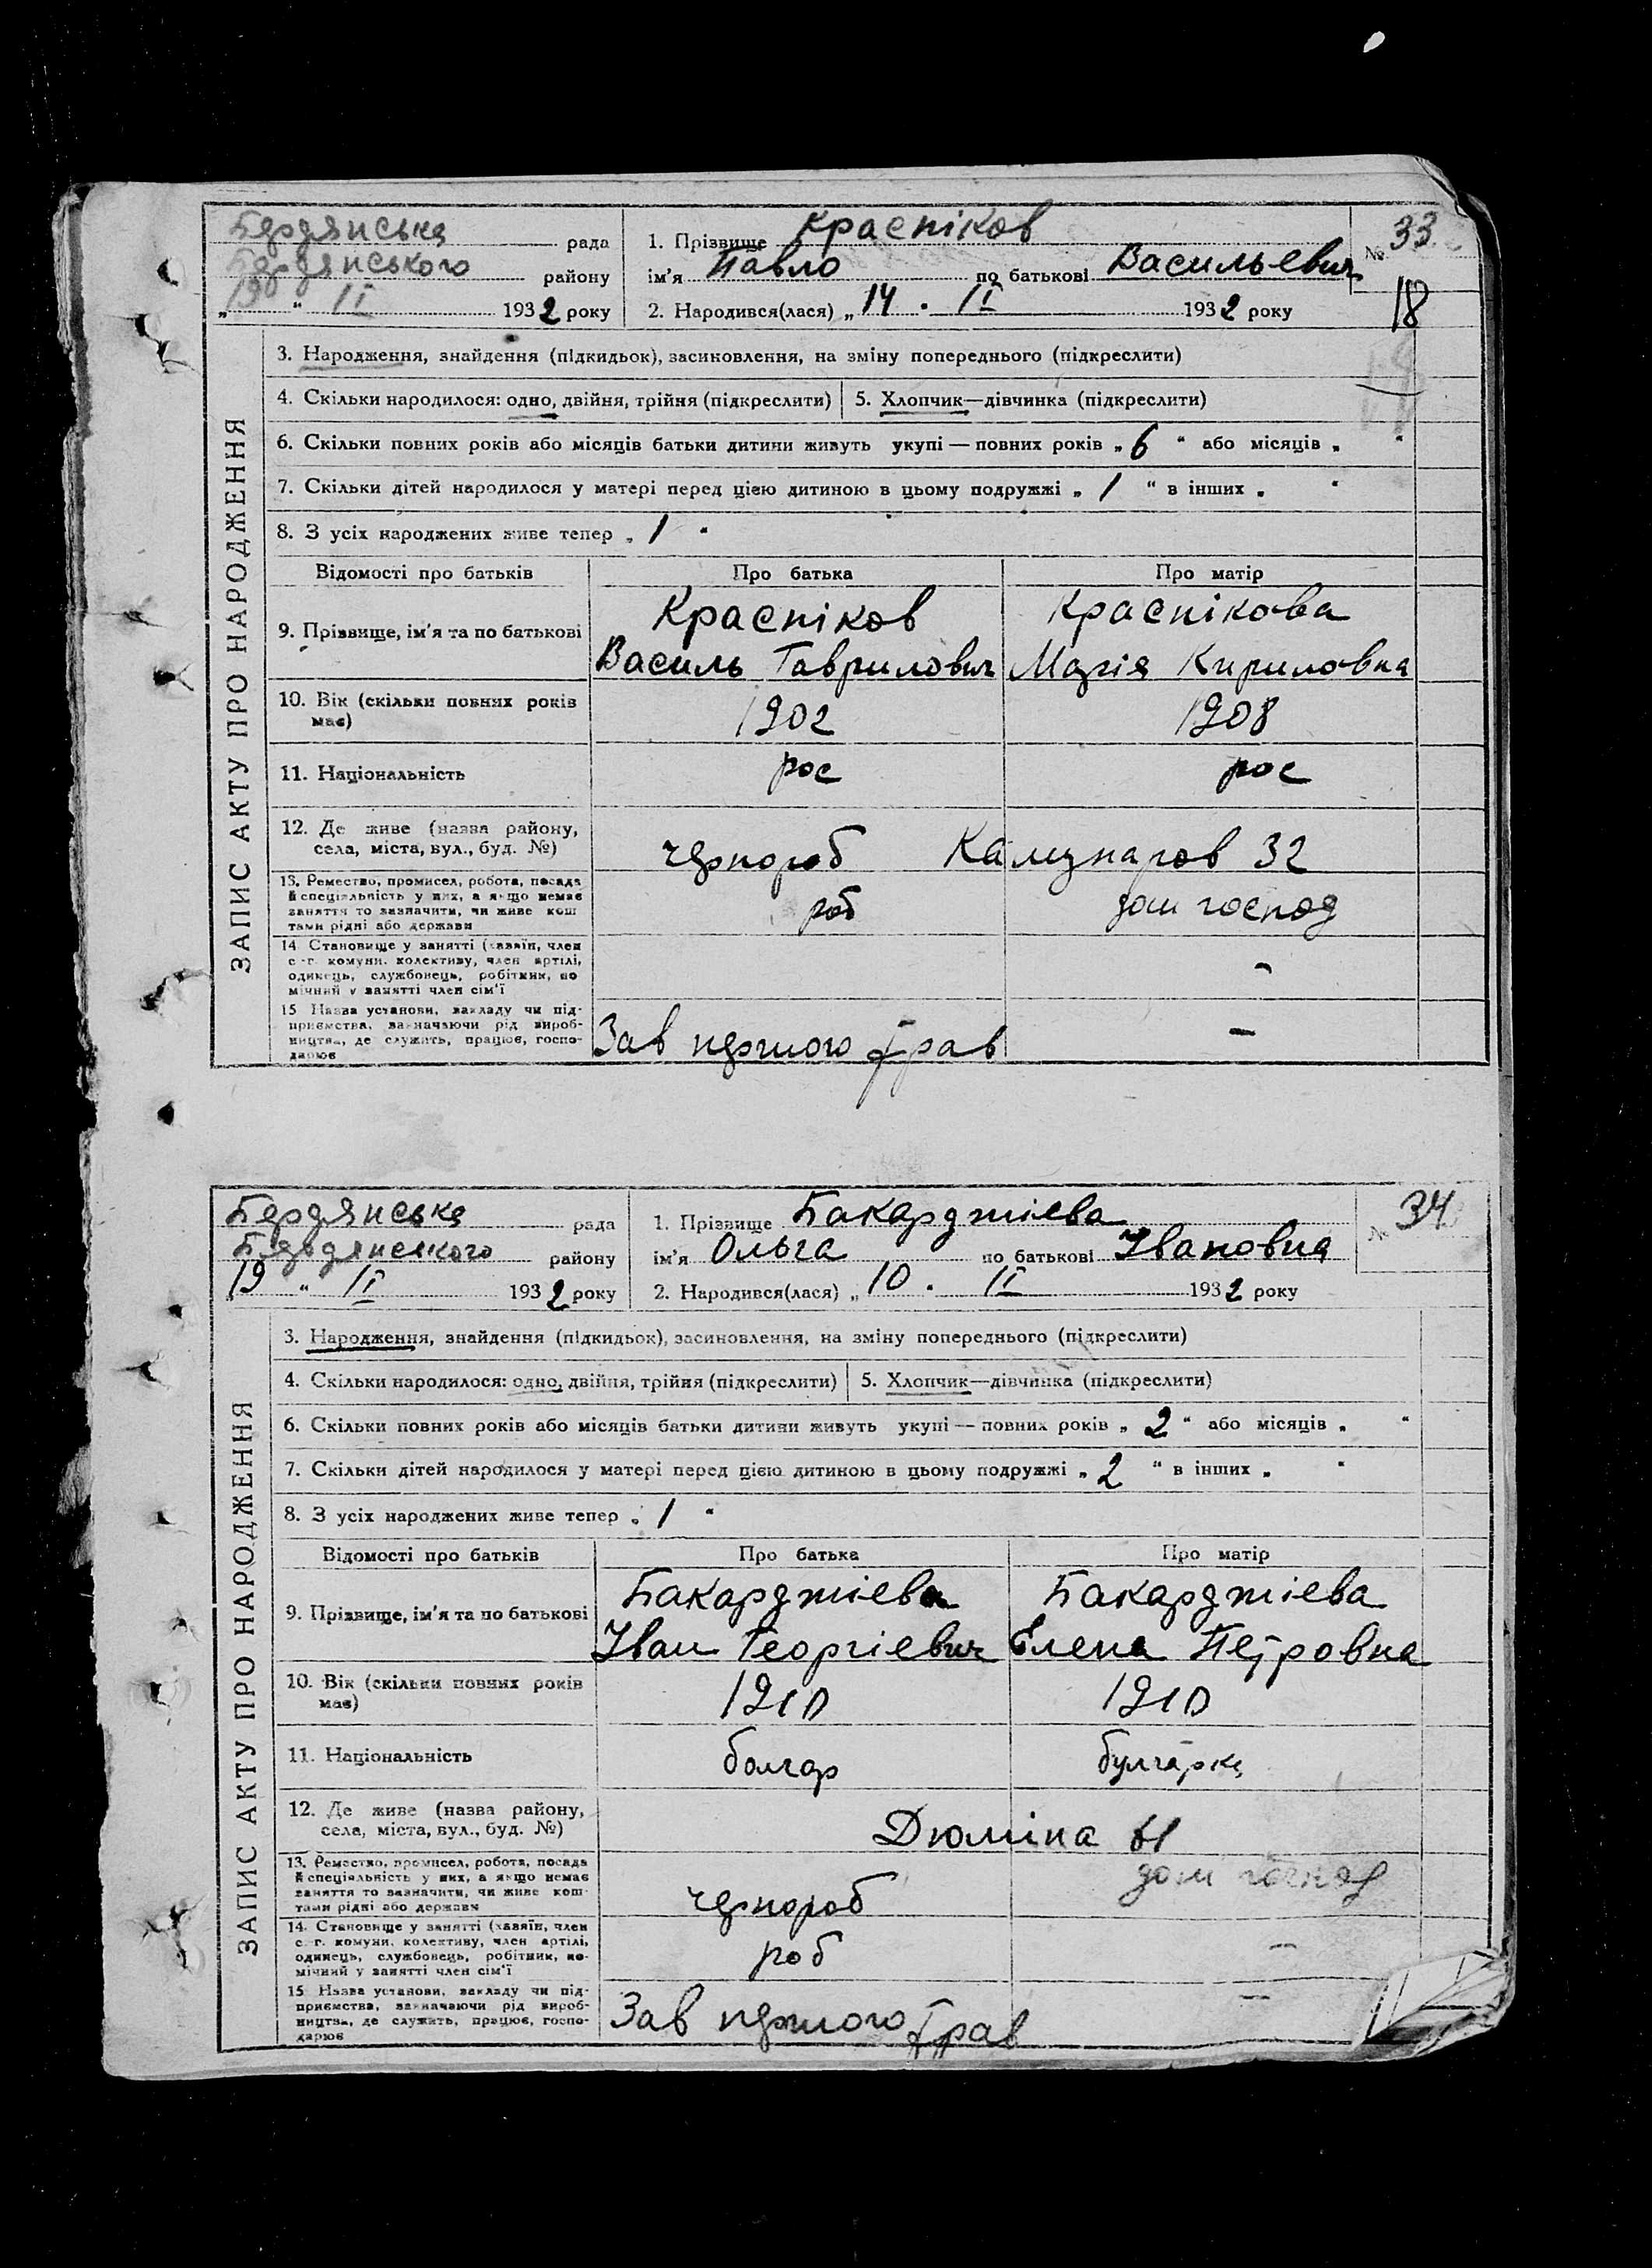 Бердянська рада
Бердянського району
„19“ II 1932 року
1. Прізвище Красніков
ім'я Павло по батькові Васильевич
2. Народився(лася) „14. II 1932 року
№ 33
18
ЗАПИС АКТУ ПРО НАРОДЖЕННЯ
3. Народження, знайдення (підкидьок), засиновлення, на зміну попереднього (підкреслити)
4. Скільки народилося: одно, двійня, трійня (підкреслити) 5. Хлопчик—дівчинка (підкреслити)
6. Скільки повних років або місяців батьки дитини живуть укупі — повних років „6“ або місяців „ “
7. Скільки дітей народилося у матері перед цією дитиною в цьому подружжі „1“ в інших „ “
8. З усіх народжених живе тепер „1“
Відомості про батьків Про батька Про матір
9. Прізвище, ім'я та по батькові
Красніков Краснікова
Василь Гаврилович Марія Кириловна
10. Вік (скільки повних років
має)
1902 1908
11. Національність рос рос
12. Де живе (назва району,
села, міста, вул., буд. №)
чернороб Комунаров 32
13. Ремество, промисел, робота, посада
й спеціяльність у них, а якщо немає
заняття то зазначити, чи живе кош
тами рідні або держави
роб дом господ
14 Становище у занятті (хазяїн, член
с.-г. комуни, колективу, член артілі,
одинець, службовець, робітник, по
мічний у занятті член сім'ї
-
15 Назва установи, закладу чи під-
приємства, зазначаючи рід вироб-
ництва, де служить, працює, госпо-
дарює
Зав першого трав -
Бердянська рада
Бердянського району
„19“ II 1932 року
1. Прізвище Бакарджиєва
ім'я Ольга по батькові Івановна
2. Народився(лася) „10. II 1932 року
№ 34
ЗАПИС АКТУ ПРО НАРОДЖЕННЯ
3. Народження, знайдення (підкидьок), засиновлення, на зміну попереднього (підкреслити)
4. Скільки народилося: одно, двійня, трійня (підкреслити) 5. Хлопчик—дівчинка (підкреслити)
6. Скільки повних років або місяців батьки дитини живуть укупі — повних років „2“ або місяців „ “
7. Скільки дітей народилося у матері перед цією дитиною в цьому подружжі „2“ в інших „ “
8. З усіх народжених живе тепер „1“
Відомості про батьків Про батька Про матір
9. Прізвище, ім'я та по батькові
Бакарджиєва Бакарджиєва
Іван Георгієвич Елена Петровна
10. Вік (скільки повних років
має)
1910 1910
11. Національність болгар булгарка
12. Де живе (назва району,
села, міста, вул., буд. №)
Дюміна 61
13. Ремество, промисел, робота, посада
й спеціяльність у них, а якщо немає
заняття то зазначити, чи живе кош-
тами рідні або держави
чернороб дом господ
14. Становище у занятті (хазяїн, член
с.-г. комуни, колективу, член артілі,
одинець, службовець, робітник, по-
мічний у занятті член сім'ї
роб -
15 Назва установи, закладу чи під-
приємства, зазначаючи рід вироб-
ництва, де служить, працює, госпо-
дарює
Зав першого трав -